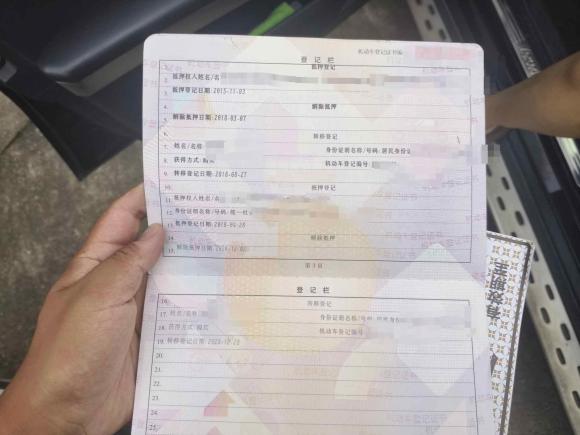 机动车登记证书编
登记栏
1. 抵押登记
2. 抵押权人姓名/名
3. 抵押登记日期:2015-11-03
4. 解除抵押
5. 解除抵押日期:2018-03-07
6. 转移登记
7. 姓名/名称 身份证明名称/号码:居民身份证
8. 获得方式:购 机动车登记编号
9. 转移登记日期:2018-08-27
10. 抵押登记
11. 抵押权人姓名/名
12. 身份证明名称/号码:统一社
13. 抵押登记日期:2018-
14. 解除抵押
15. 解除抵押日期:
第3页
登记栏
16. 转移登记
17. 姓名/名称 身份证明名称/号码
18. 获得方式:购买 机动车登记编号
19. 转移登记日期:2020-12-
20.
21.
22.
23.
24.
25.